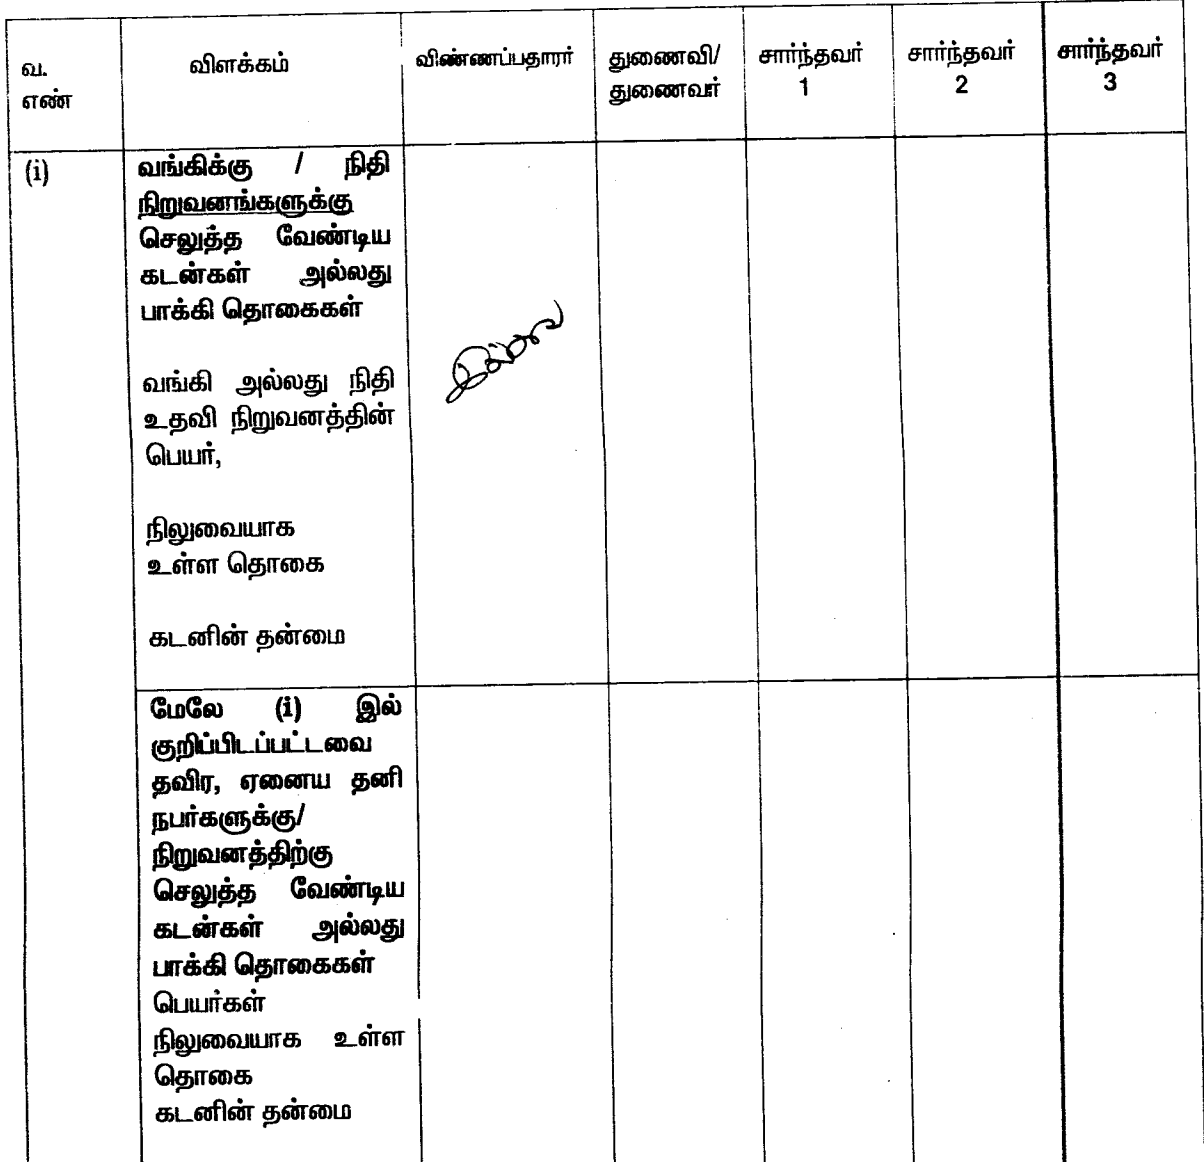 வ. எண் விளக்கம் விண்ணப்பதாரர் துணைவி/ துணைவர் சார்ந்தவர் 1 சார்ந்தவர் 2 சார்ந்தவர் 3
(i)
வங்கிக்கு / நிதி
நிறுவனங்களுக்கு
செலுத்த வேண்டிய
கடன்கள் அல்லது
பாக்கி தொகைகள்
இல்லை
வங்கி அல்லது நிதி
உதவி நிறுவனத்தின்
பெயர்,
நிலுவையாக
உள்ள தொகை
கடனின் தன்மை
மேலே (i) இல்
குறிப்பிடப்பட்டவை
தவிர, ஏனைய தனி
நபர்களுக்கு/
நிறுவனத்திற்கு
செலுத்த வேண்டிய
கடன்கள் அல்லது
பாக்கி தொகைகள்
பெயர்கள்
நிலுவையாக உள்ள
தொகை
கடனின் தன்மை